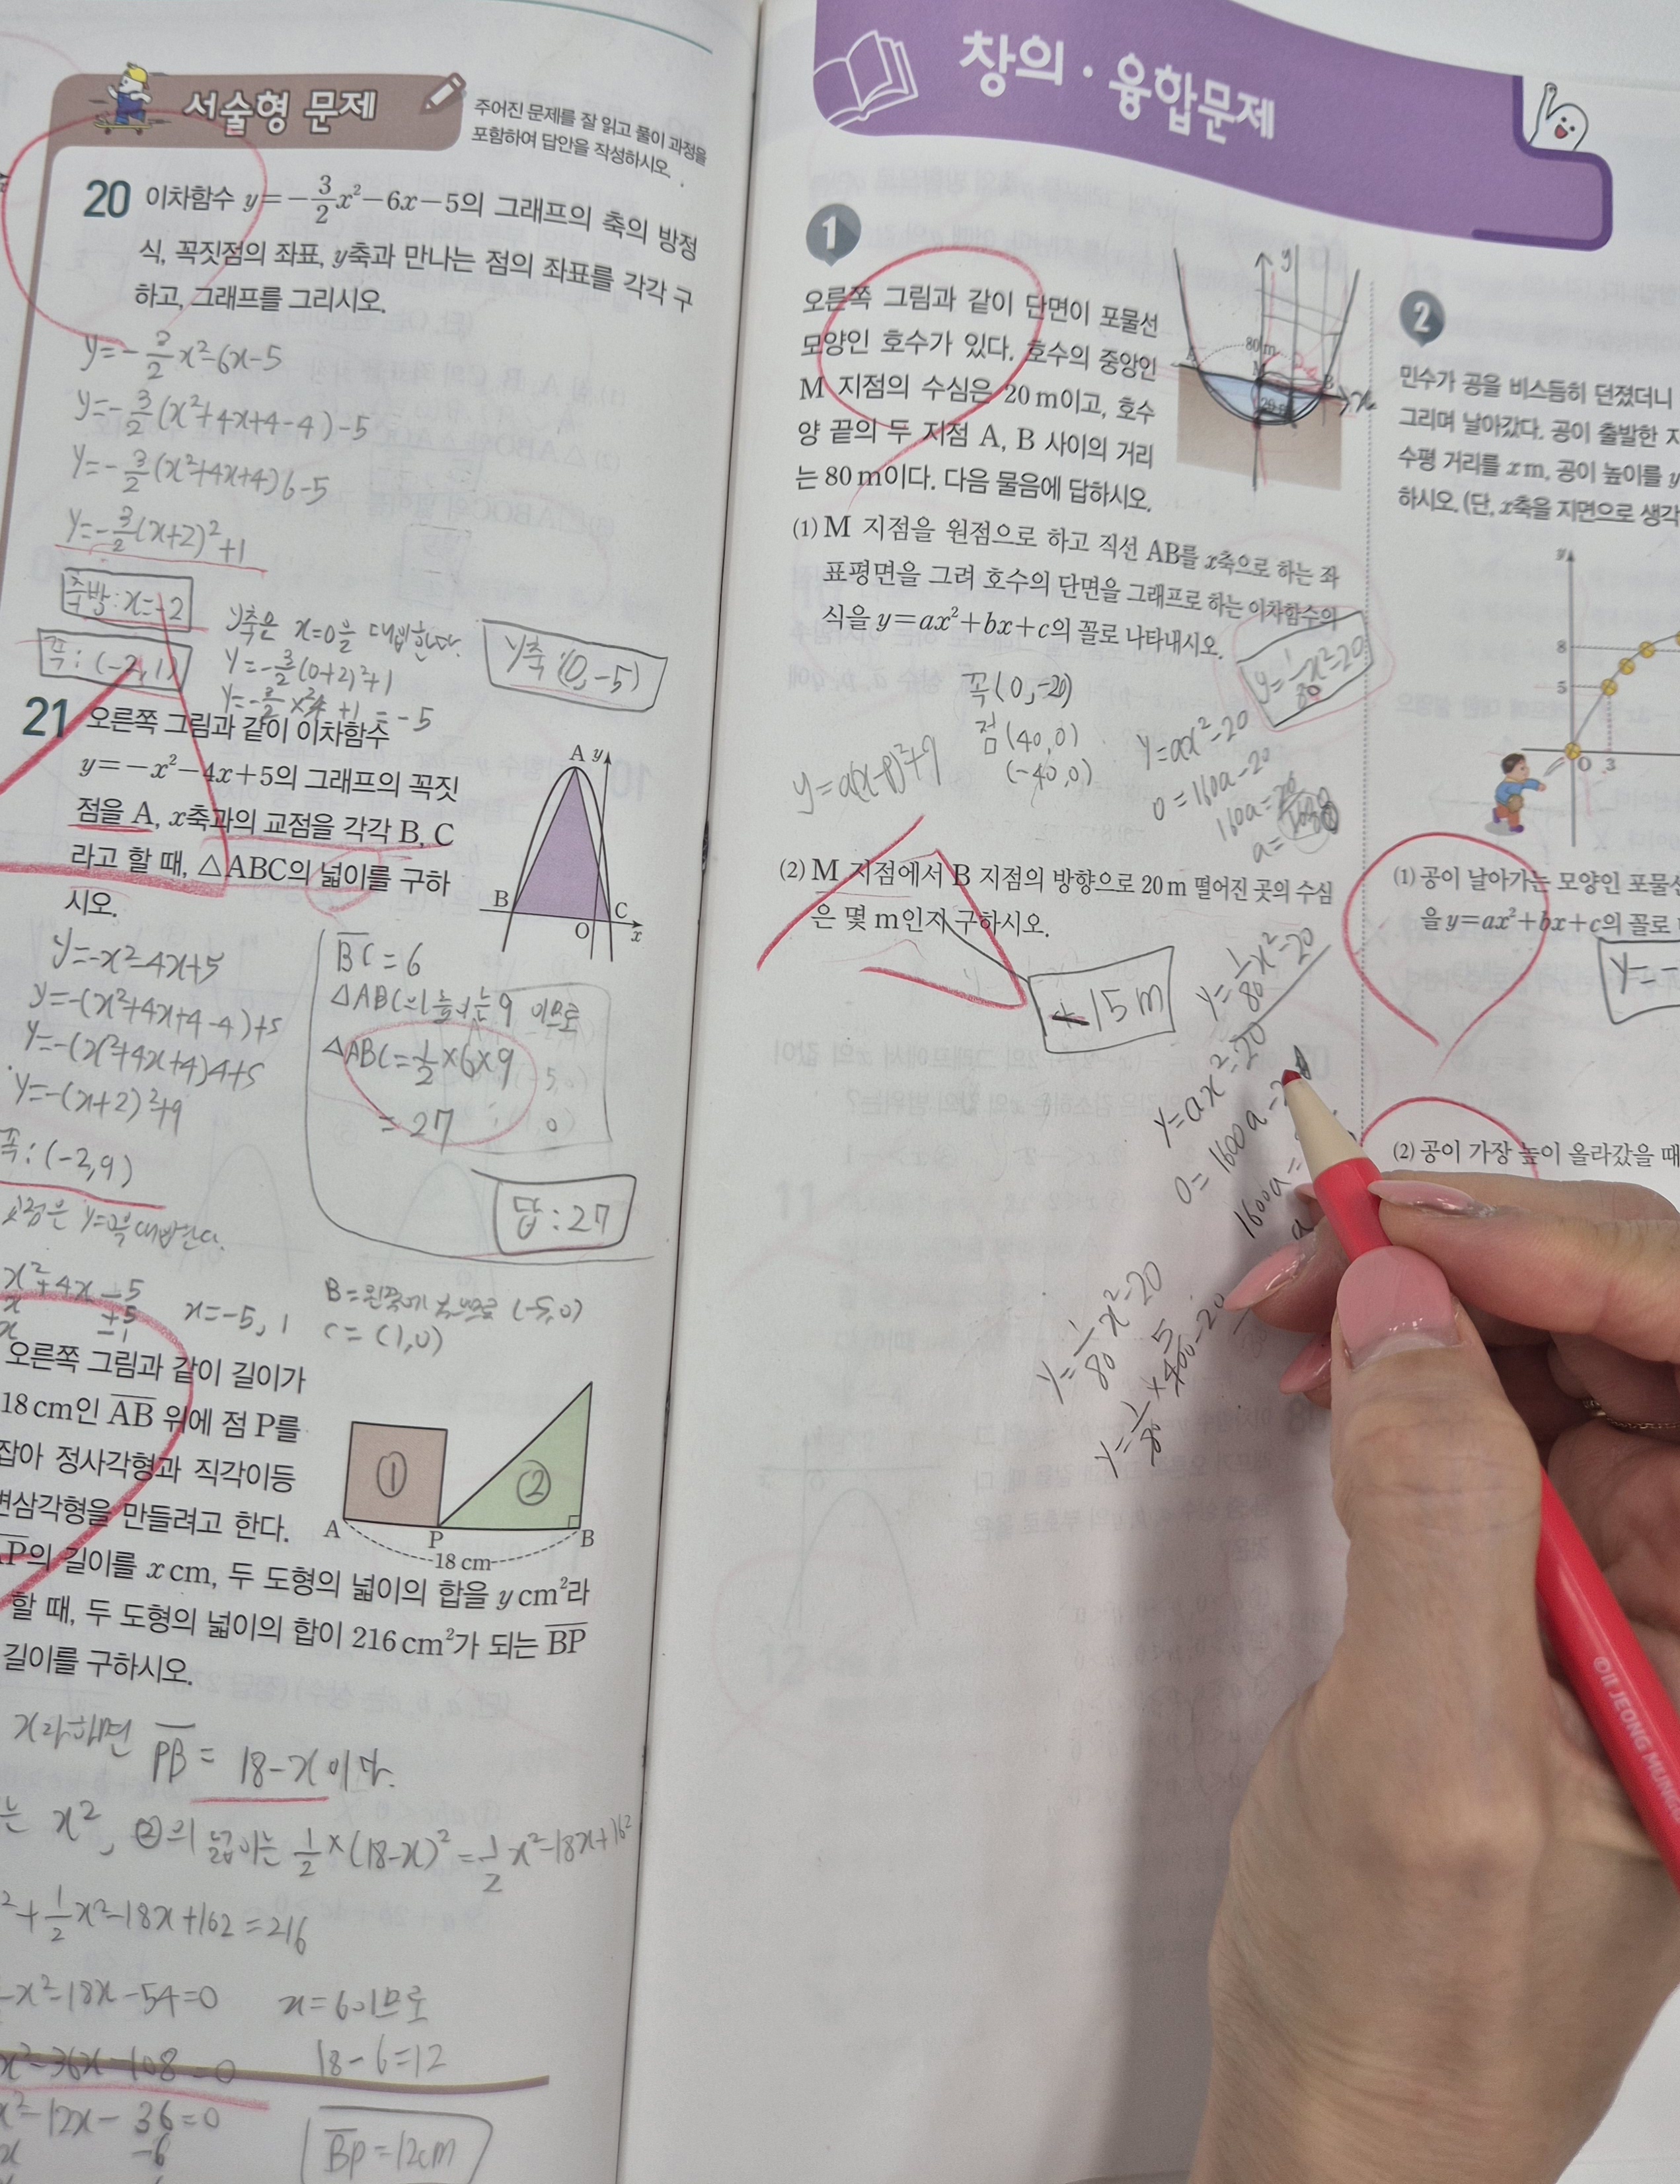 서술형 문제
주어진 문제를 잘 읽고 풀이 과정을
포함하여 답안을 작성하시오.
20 이차함수 y=-3/2x²-6x-5의 그래프의 축의 방정
식, 꼭짓점의 좌표, y축과 만나는 점의 좌표를 각각 구
하고, 그래프를 그리시오.
y=-3/2x²-6x-5
y=-3/2(x²+4x+4-4)-5
y=-3/2(x²+4x+4)6-5
y=-3/2(x+2)²+1
축방:x=-2
꼭:(-2,1)
y축은 x=0을 대입한다.
y=-3/2(0+2)²+1
+1=-5
y축:(0,-5)
21 오른쪽 그림과 같이 이차함수
y=-x²-4x+5의 그래프의 꼭짓
점을 A, x축과의 교점을 각각 B, C
라고 할 때, △ABC의 넓이를 구하
시오.
A y
B
O
C
x
y=-x²-4x+5
y=-(x²+4x+4-4)+5
y=-(x²+4x+4)4+5
y=-(x+2)²+9
꼭:(-2,9)
x²+4x-5
x +5
x -1
x=-5, 1
BC=6
△ABC의 높이는 9 이므로
△ABC=1/2×6×9
=27
답:27
B=왼쪽에 있으므로 (-5,0)
C=(1,0)
오른쪽 그림과 같이 길이가
18 cm인 AB 위에 점 P를
잡아 정사각형과 직각이등
변삼각형을 만들려고 한다.
AP의 길이를 x cm, 두 도형의 넓이의 합을 y cm²라
할 때, 두 도형의 넓이의 합이 216 cm²가 되는 BP
길이를 구하시오.
①
②
A
P
B
18 cm
x라 하면 PB=18-x이다.
는 x², ②의 넓이는 1/2×(18-x)²=1/2x²-18x+162
²+1/2x²-18x+162=216
x²-18x-54=0
x²-36x-108=0
x²-12x-36=0
-6
x=6이므로
18-6=12
BP=12cm
창의·융합문제
1
오른쪽 그림과 같이 단면이 포물선
모양인 호수가 있다. 호수의 중앙인
M 지점의 수심은 20 m이고, 호수
양 끝의 두 지점 A, B 사이의 거리
는 80 m이다. 다음 물음에 답하시오.
y
80 m
A
M
B
x
(1) M 지점을 원점으로 하고 직선 AB를 x축으로 하는 좌
표평면을 그려 호수의 단면을 그래프로 하는 이차함수의
식을 y=ax²+bx+c의 꼴로 나타내시오.
y=1/80x²-20
꼭(0,-20)
점(40,0)
(-40,0)
y=a(x-p)²+q
y=ax²-20
0=160a-20
160a=20
a=
(2) M 지점에서 B 지점의 방향으로 20 m 떨어진 곳의 수심
은 몇 m인지 구하시오.
15m
y=1/80x²-20
y=ax²-20
0=1600a-2
1600a=
a
y=1/80x²-20
y=1/80×400-20
5
2
민수가 공을 비스듬히 던졌더니
그리며 날아갔다. 공이 출발한 지
수평 거리를 x m, 공이 높이를 y
하시오. (단, x축을 지면으로 생각
y
8
5
O
3
(1) 공이 날아가는 모양인 포물선
을 y=ax²+bx+c의 꼴로
y=-
(2) 공이 가장 높이 올라갔을 때
©ILJEONG MUNG